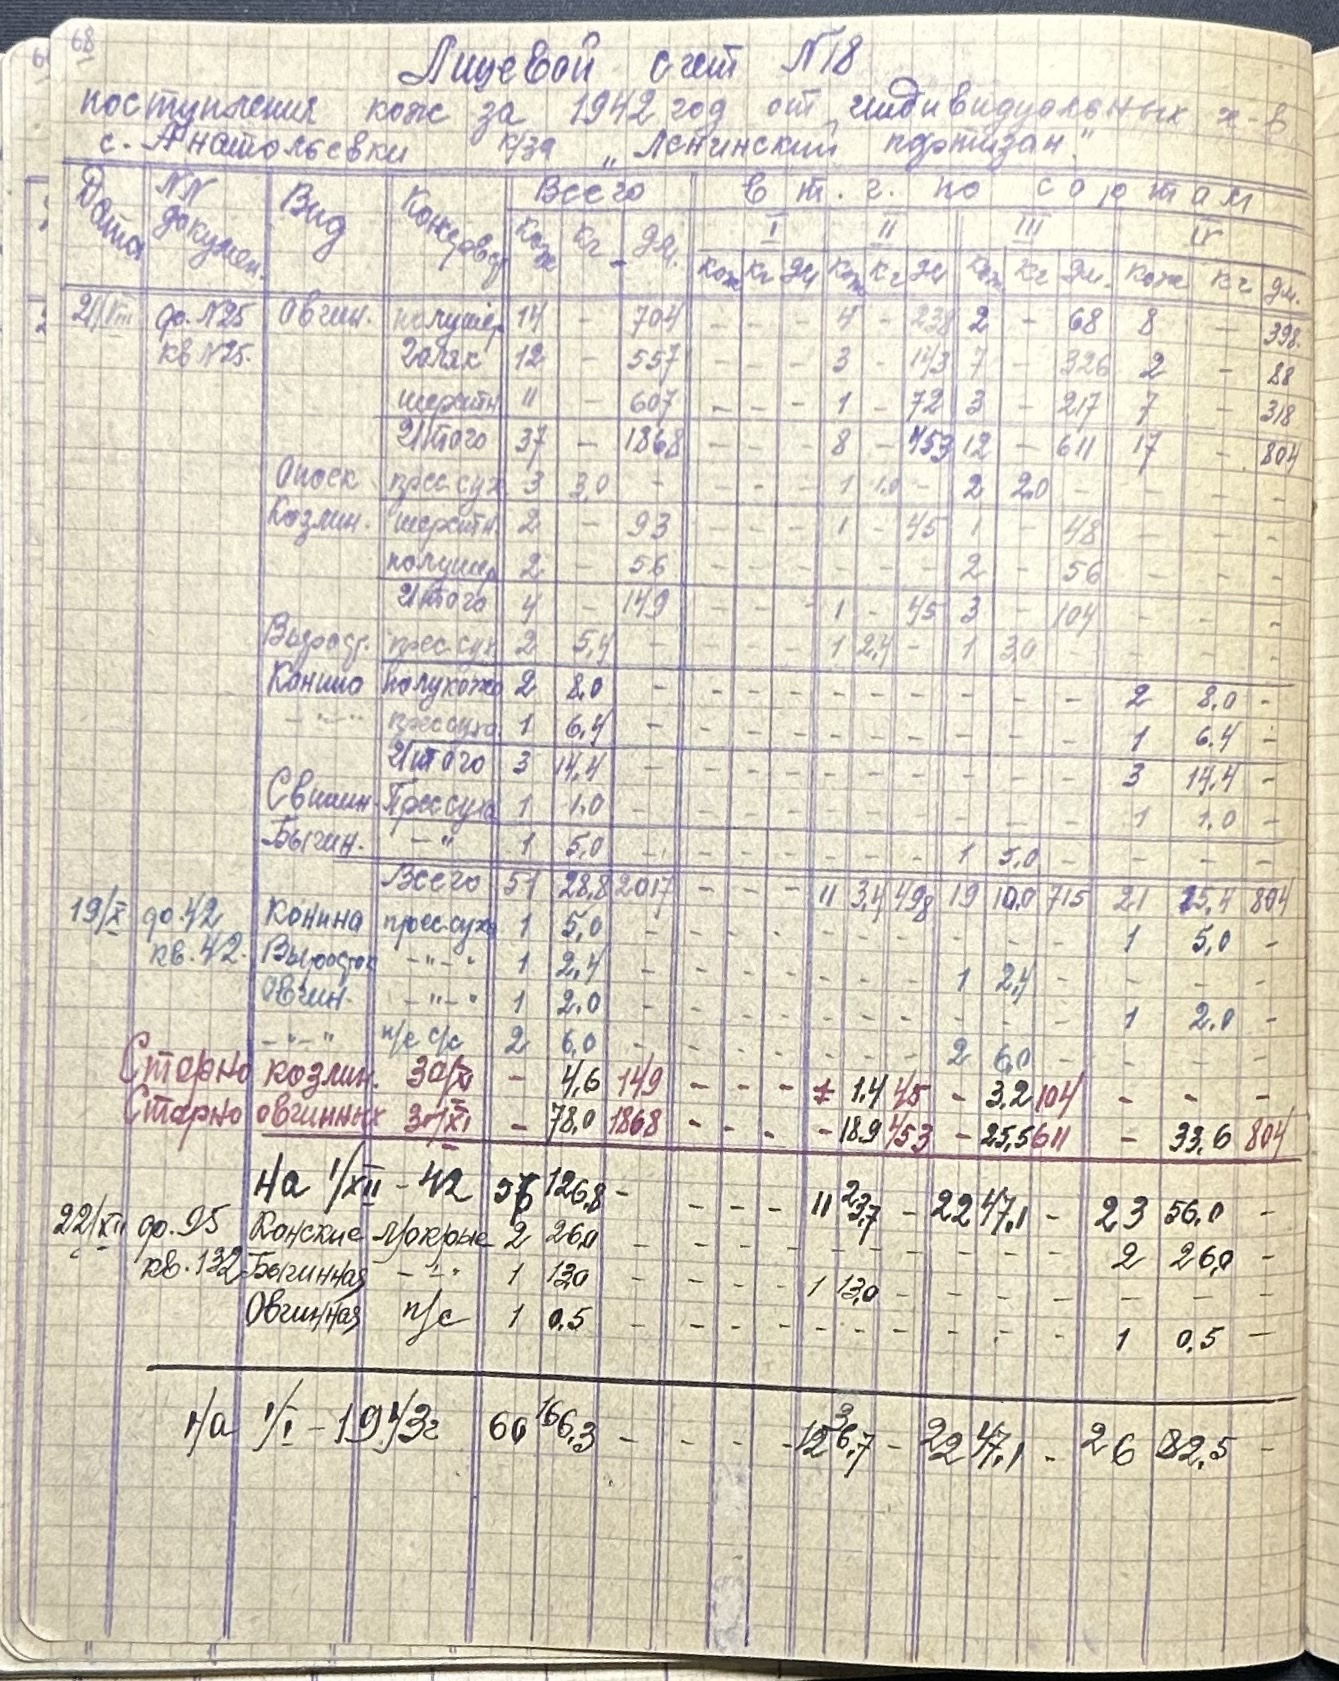 68
Лицевой счет N18
поступления кож за 1942 год от индивидуальных х-в
с. Анатольевки к/за "Ленинский партизан"
Дата NN докумен. Вид Консервов. Всего в т. ч. по сортам
I II III IV
Кож Кг дм. Кож Кг дм Кож Кг дм Кож Кг дм. Кож Кг дм.
21/VIII до. N25 Овчин. полушер. 14 - 704 - - - 4 - 238 2 - 68 8 - 398.
кв N25. Голяк 12 - 557 - - - 3 - 143 7 - 326 2 - 88
шерстн 11 - 607 - - - 1 - 72 3 - 217 7 - 318
Итого 37 - 1868 - - - 8 - 453 12 - 611 17 - 804
Опоек прессух 3 3,0 - - - - 1 1.0 - 2 2.0 - - - -
Козлин. шерстн. 2 - 93 - - - 1 - 45 1 - 48 - - -
полушер 2 - 56 - - - - - - 2 - 56 - - -
Итого 4 - 149 - - - 1 - 45 3 - 104 - - -
Вырост. прес.сух 2 5,4 - - - - 1 2,4 - 1 3,0 - - - -
Конина полукожа 2 8.0 - - - - - - - - - - 2 8,0 -
- " - " пресcуха. 1 6,4 - - - - - - - - - - 1 6.4 -
Итого 3 14,4 - - - - - - - - - - 3 14,4 -
Свинин. Прессуха 1 1.0 - - - - - - - - - - 1 1,0 -
Бычин. - " 1 5,0 - - - - - - - 1 5,0 - - - -
Всего 51 28,8 2017 - - - 11 3,4 498 19 10.0 715 21 15,4 804
19/X до.42 Конина прес.суха 1 5,0 - - - - - - - - - - 1 5,0 -
кв. 42. Выросток - " - " 1 2,4 - - - - - - - 1 2,4 - - - -
Овчин. - " - " 1 2.0 - - - - - - - - - - 1 2.0 -
- " - " п/с с/с 2 6,0 - - - - - - - 2 6,0 - - - -
Сторно козлин. 30/XI - 4,6 149 - - - 1.4 45 - 3.2 104 - - -
Сторно овчинных 30/XI - 78,0 1868 - - - - 18.9 453 - 25,5 611 - 33,6 804
На 1/XII - 42 56 126,8 - - - - 11 23,7 - 22 47,1 - 23 56.0 -
22/XII до. 95 Конские мокрые 2 26,0 - - - - - - - - - - 2 26,0 -
кв. 132 Бычинная - " - " 1 13,0 - - - - 1 13,0 - - - - - - -
Овчинная п/с 1 0.5 - - - - - - - - - - 1 0.5 -
На 1/I - 1943г 60 166,3 - - - - 12 36,7 - 22 47,1 - 26 82,5 -